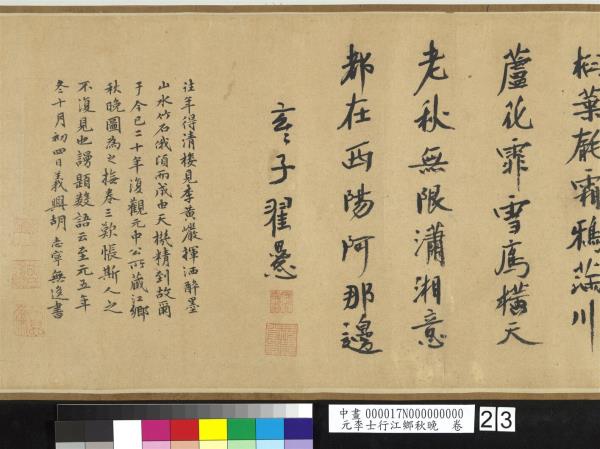 葉酣霜鴉滿川
蘆花霏雪雁橫天
老秋無限瀟湘意
都在西陽阿那邊
子翟
往年得清樓見李黃巖揮洒醉墨
山水竹石俄頃而成由天機精到故爾
于今已二十年復觀元中公所藏江鄉
秋晚圖為之撫卷三歎悵斯人之
不復見也謾題數語云至元五年
冬十月初四日義興胡志寧無逸書
中畫 000017N000000000
元李士行江鄉秋晚 卷
23